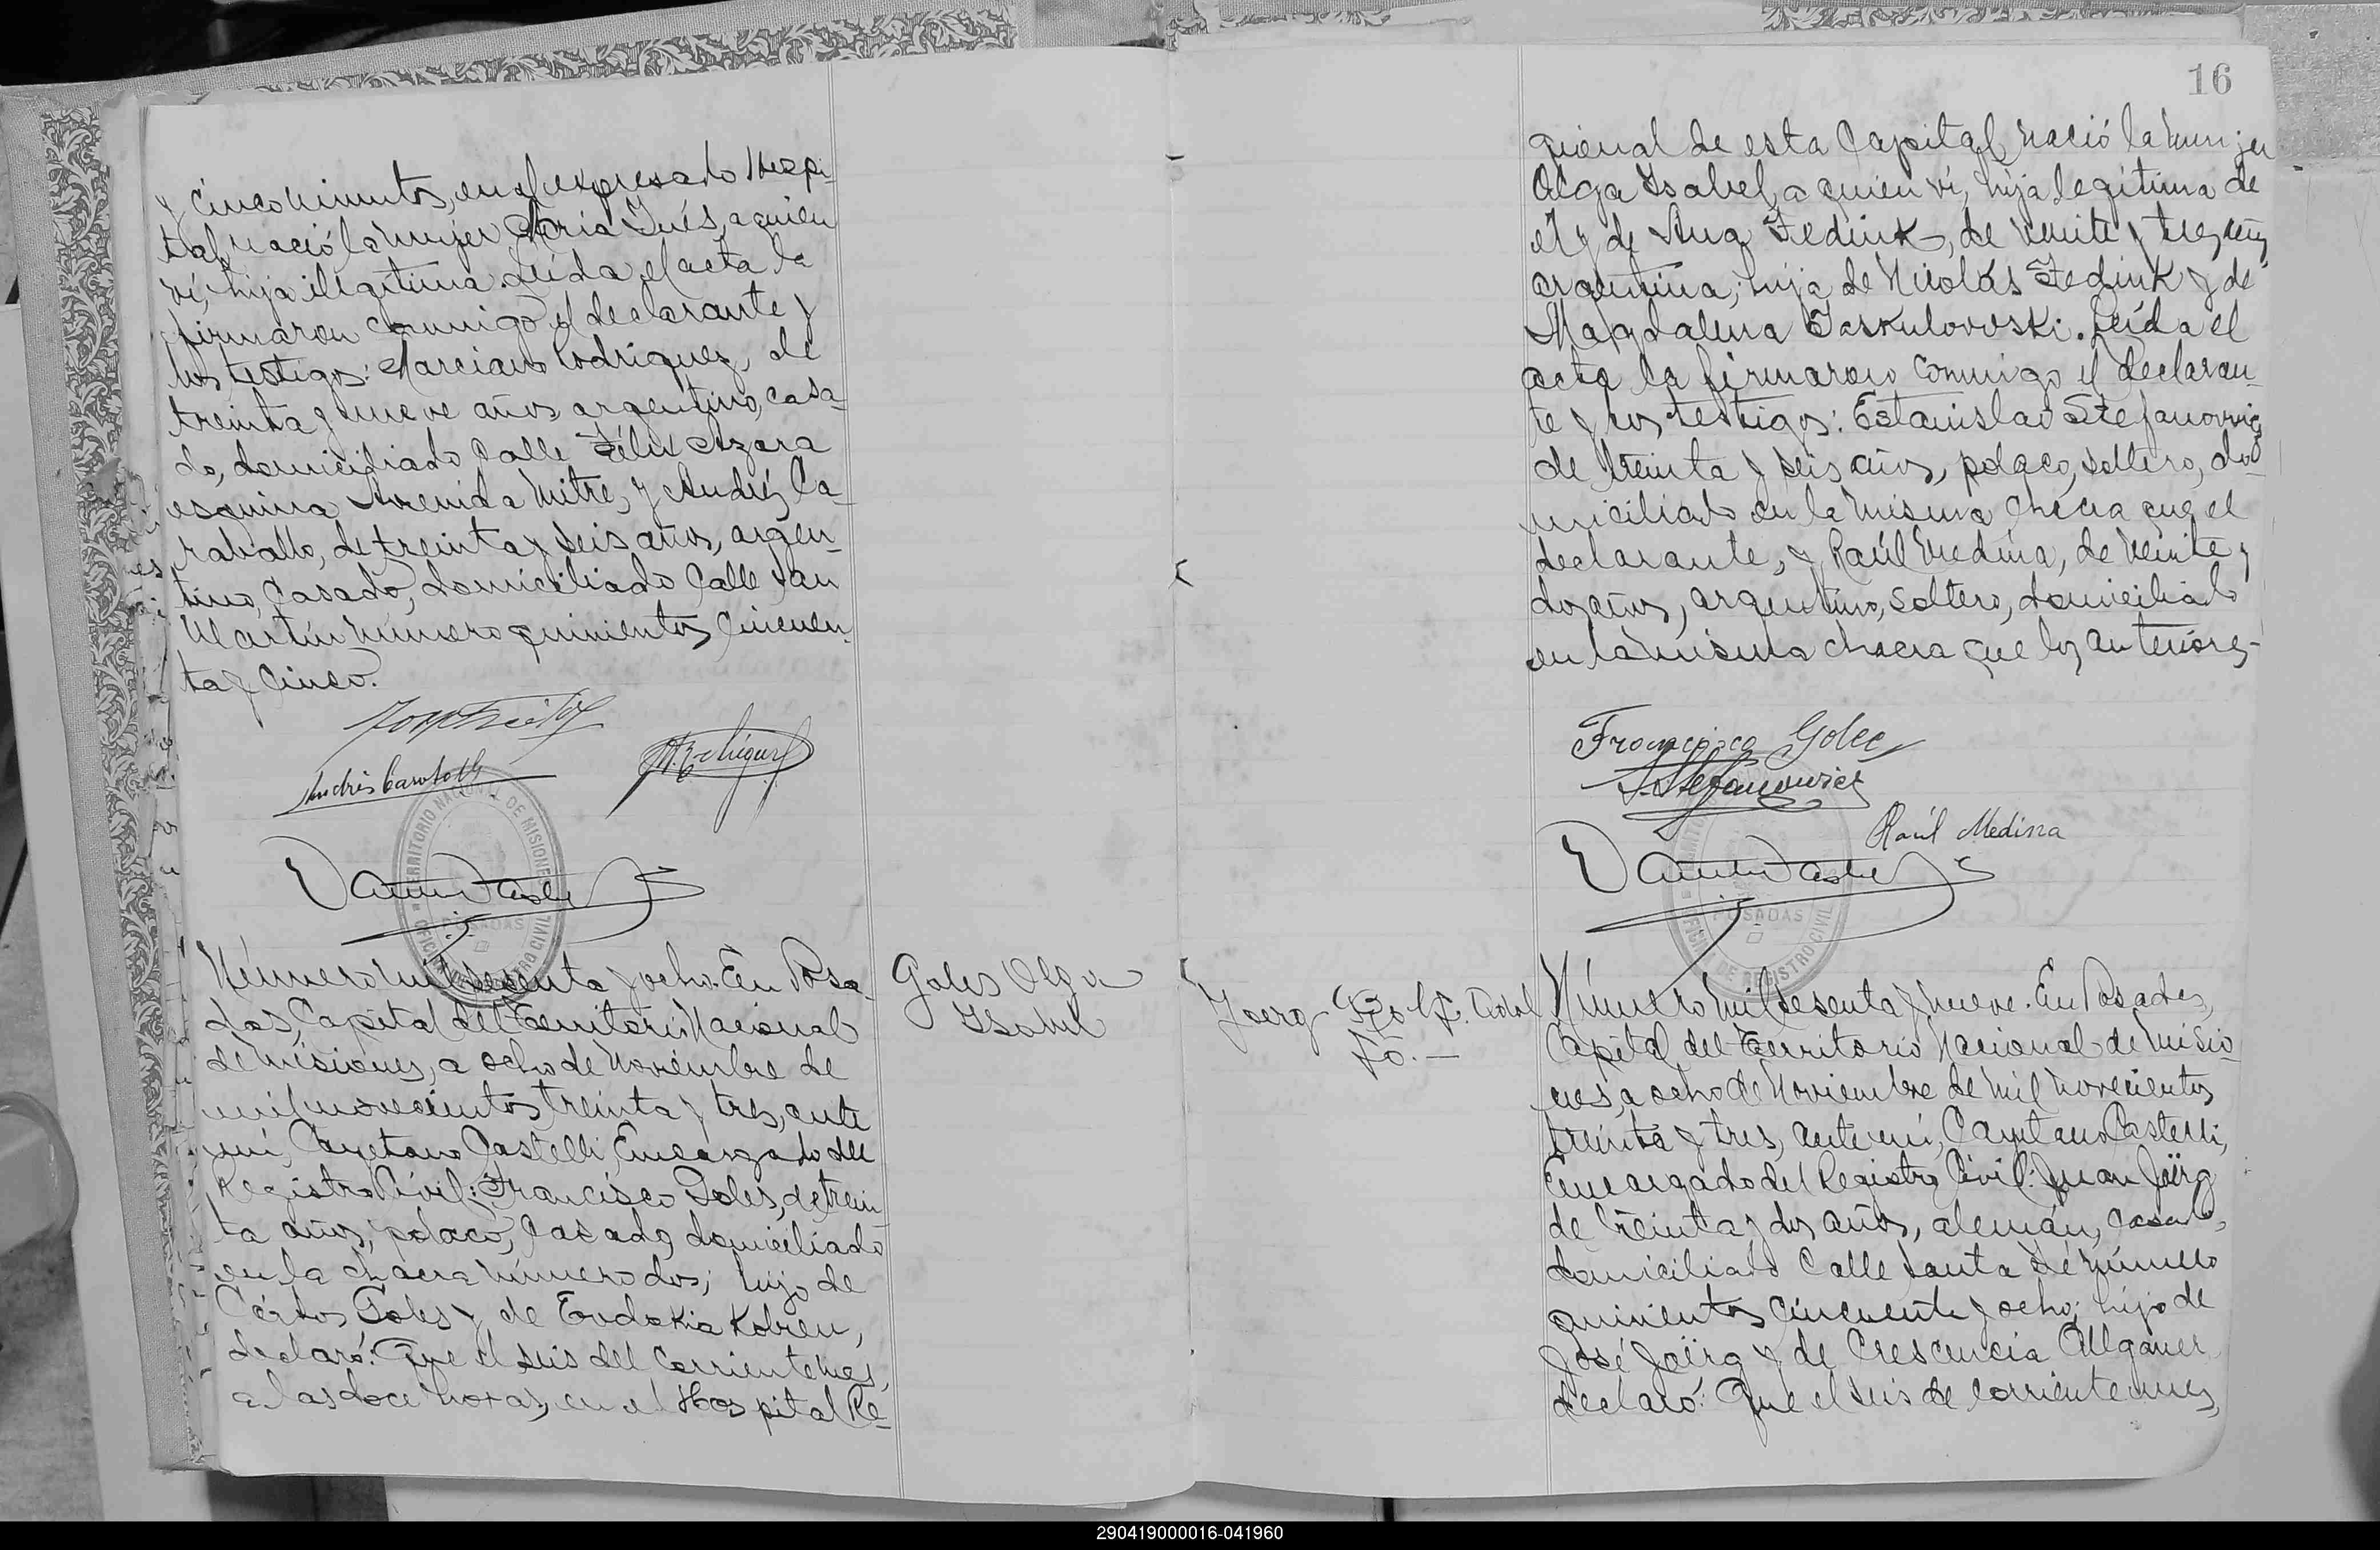 y cinco minutos, en el expresado Hospi-
tal nació la mujer María Inés, a quien
ví, hija ilegítima. Leída el acta la
firmaron conmigo el declarante y
los testigos: Marciano Rodríguez, de
treinta y nueve años, argentino, casa-
do, domiciliado Calle Félix Azara
esquina Avenida Mitre, y Andrés Ca-
raballo, de treinta y seis años, argen-
tino, casado, domiciliado Calle San
Martín número quinientos cincuen-
ta y cinco.
TERRITORIO NACIONAL DE MISIONES
POSADAS
OFICINA DE REGISTRO CIVIL
Número mil sesenta y ocho. En Posa-
das, Capital del Territorio Nacional
de Misiones, a ocho de Noviembre de
mil novecientos treinta y tres, ante
mí, Cayetano Castelli, Encargado del
Registro Civil: Francisco Goles, de trein-
ta años, polaco, casado, domiciliado
en la chacra número dos; hijo de
Carlos Goles y de Eudokia Kobren,
declaró: Que el seis del corriente mes,
a las doce horas, en el Hospital Re-
Goles Olga
Isabel
16
gional de esta Capital, nació la mujer
Olga Isabel, a quien ví, hija legítima de
él y de Ana Fedink, de veinte y tres años,
argentina; hija de Nicolás Fedink y de
Magdalena Jaskulowski. Leída el
acta la firmaron conmigo el declaran-
te y los testigos: Estanislao Stefanowicz
de treinta y seis años, polaco, soltero, do-
miciliado en la misma chacra que el
declarante, y Raúl Medina, de veinte y
dos años, argentino, soltero, domiciliado
en la misma chacra que los anteriores-
Francisco Golec
S. Stefanowicz
Raúl Medina
POSADAS
OFICINA DE REGISTRO CIVIL
Joerg Rolf. Adol
fo.-
Número mil sesenta y nueve. En Posadas,
Capital del Territorio Nacional de Misio-
nes, a ocho de Noviembre de mil novecientos
treinta y tres, ante mí, Cayetano Castelli,
Encargado del Registro Civil: Juan Joërg
de treinta y dos años, alemán, casado,
domiciliado Calle Santa Fé número
quinientos cincuenta y ocho; hijo de
José Joërg y de Crescencia Allganer
declaró: Que el seis de corriente mes,
290419000016-041960